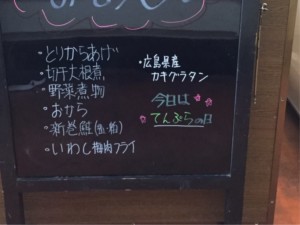 ・とりからあげ
・切干大根煮
・野菜煮物
・おから
・新巻鮭
・いわし梅肉フライ
・広島県産
カキグラタン
今日は
てんぷらの日